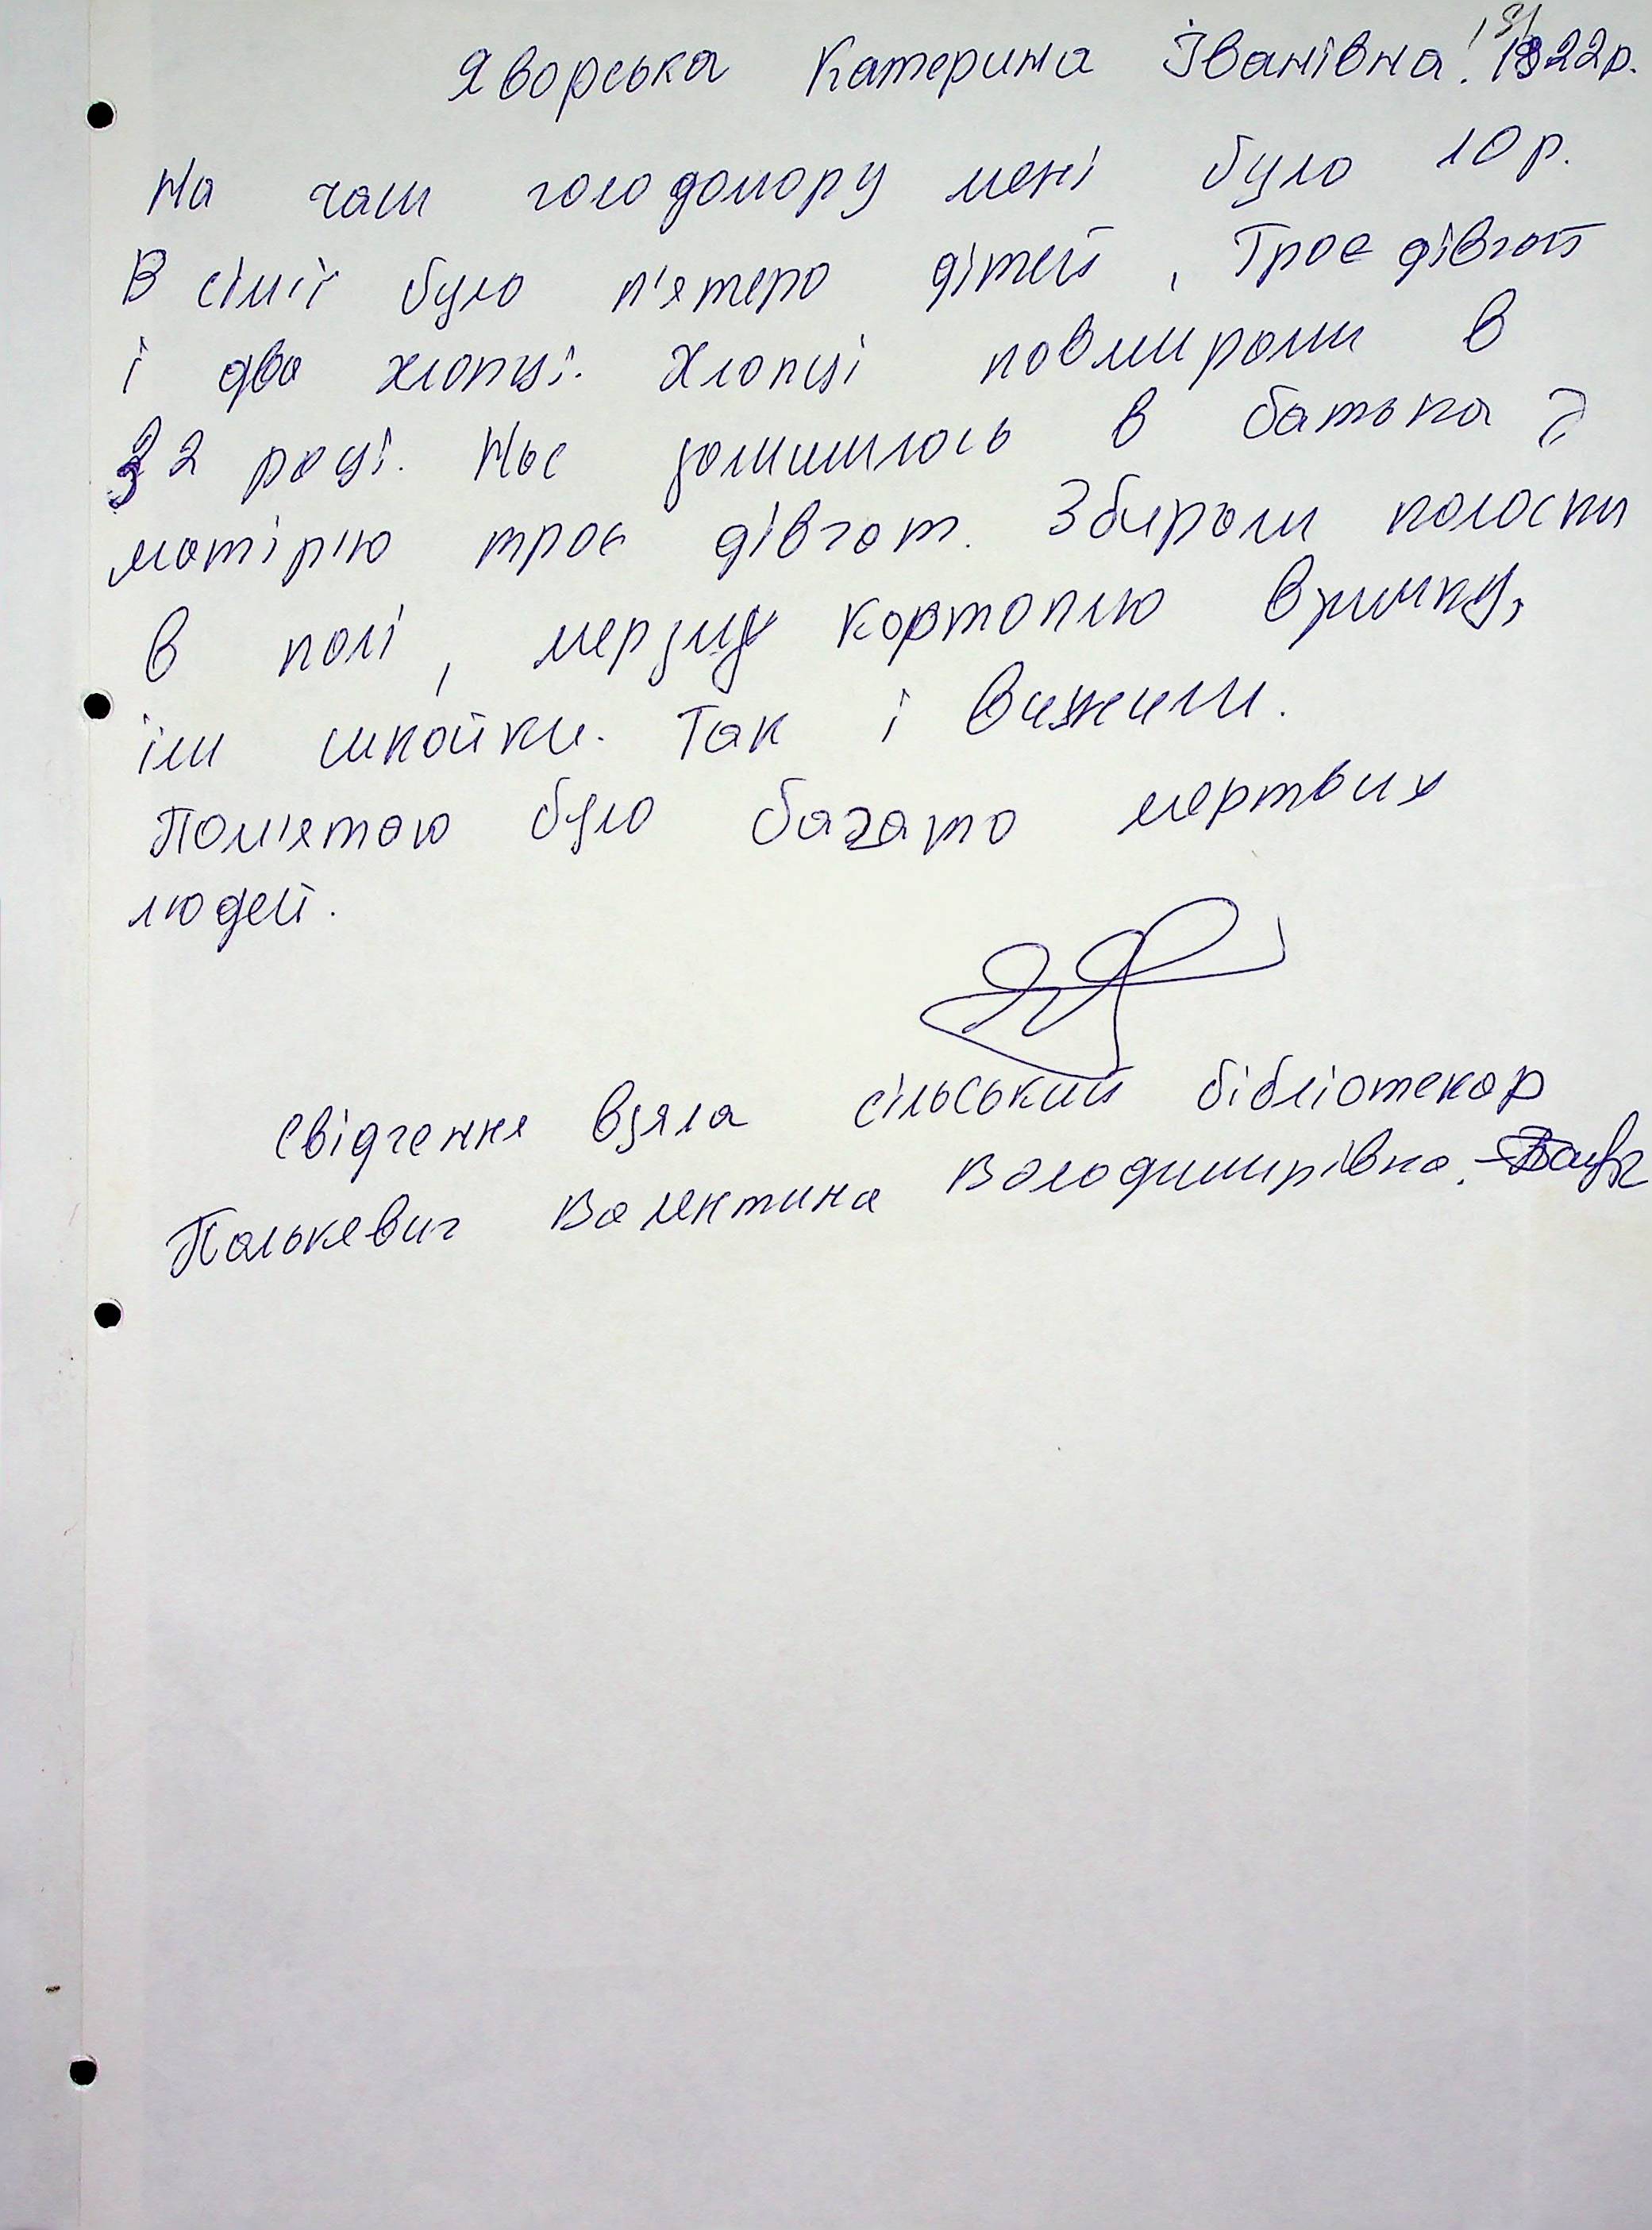 Яворська Катерина Іванівна! 1922р.
На час голодомору мені було 10 р.
В сімії було п'ятеро дітей, Троє дівчат
і два хлопці. Хлопці повмирали в
32 році. Нас залишилось в батька з
матір'ю троє дівчат. Збирали колоски
в полі, мерзлу картоплю взимку,
їли шкойки. Так і вижили.
Пом'ятаю було багато мертвих
людей.
Свідчення взяла сільський бібліотекар
Палькевич Валентина Володимирівна.